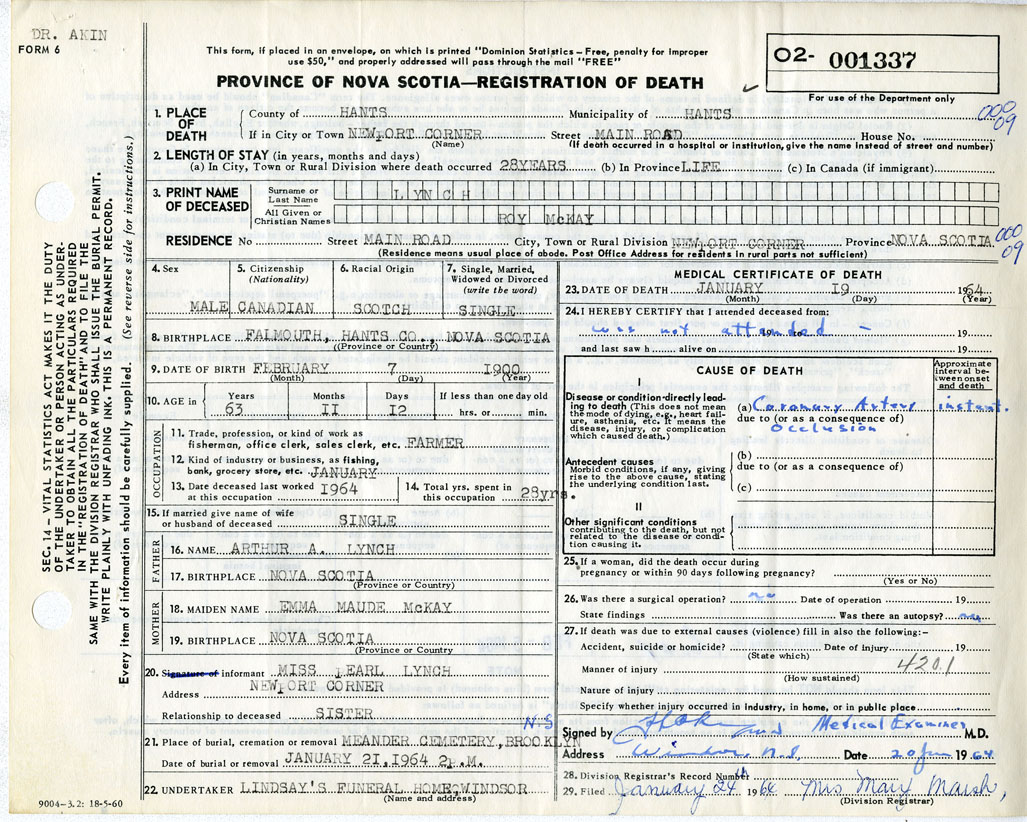 DR. AKIN
FORM 6
This form, if placed in an envelope, on which is printed "Dominion Statistics – Free, penalty for improper
use $50," and properly addressed will pass through the mail "FREE"
PROVINCE OF NOVA SCOTIA—REGISTRATION OF DEATH
O2- 001337
For use of the Department only
SEC. 14 – VITAL STATISTICS ACT MAKES IT THE DUTY
OF THE UNDERTAKER OR PERSON ACTING AS UNDER-
TAKER TO OBTAIN ALL THE PARTICULARS REQUIRED
IN THE "REGISTRATION OF DEATH" AND TO FILE THE
SAME WITH THE DIVISION REGISTRAR WHO SHALL ISSUE THE BURIAL PERMIT.
WRITE PLAINLY WITH UNFADING INK. THIS IS A PERMANENT RECORD.
Every item of information should be carefully supplied. (See reverse side for instructions.)
1. PLACE OF DEATH County of HANTS Municipality of HANTS
000 09
If in City or Town NEWPORT CORNER Street MAIN ROAD House No.
(Name) (If death occurred in a hospital or institution, give the name instead of street and number)
2. LENGTH OF STAY (in years, months and days)
(a) In City, Town or Rural Division where death occurred 28YEARS (b) In Province LIFE (c) In Canada (if immigrant)
3. PRINT NAME OF DECEASED Surname or Last Name LYNCH
All Given or Christian Names ROY McKAY
RESIDENCE No Street MAIN ROAD City, Town or Rural Division NEWPORT CORNER Province NOVA SCOTIA
000 09
(Residence means usual place of abode. Post Office Address for residents in rural parts not sufficient)
4. Sex 5. Citizenship (Nationality) 6. Racial Origin 7. Single, Married, Widowed or Divorced (write the word)
MALE CANADIAN SCOTCH SINGLE
8. BIRTHPLACE FALMOUTH, HANTS CO., NOVA SCOTIA
(Province or Country)
9. DATE OF BIRTH FEBRUARY 7 1900
(Month) (Day) (Year)
10. AGE in Years Months Days If less than one day old
63 11 12 hrs. or min.
OCCUPATION
11. Trade, profession, or kind of work as
fisherman, office clerk, sales clerk, etc. FARMER
12. Kind of industry or business, as fishing,
bank, grocery store, etc. JANUARY
13. Date deceased last worked at this occupation 1964 14. Total yrs. spent in this occupation 28yrs.
15. If married give name of wife
or husband of deceased SINGLE
FATHER
16. NAME ARTHUR A. LYNCH
17. BIRTHPLACE NOVA SCOTIA
(Province or Country)
MOTHER
18. MAIDEN NAME EMMA MAUDE McKAY
19. BIRTHPLACE NOVA SCOTIA
(Province or Country
20. Signature of informant MISS PEARL LYNCH
Address NEWPORT CORNER
Relationship to deceased SISTER
N.S
21. Place of burial, cremation or removal MEANDER CEMETERY, BROOKLYN
Date of burial or removal JANUARY 21, 1964 2P.M.
22. UNDERTAKER LINDSAY'S FUNERAL HOME, WINDSOR
(Name and address)
9004–3.2: 18-5-60
MEDICAL CERTIFICATE OF DEATH
23. DATE OF DEATH JANUARY 19 1964
(Month) (Day) (Year)
24. I HEREBY CERTIFY that I attended deceased from:
was not attended – 19
and last saw h alive on 19
CAUSE OF DEATH
Approximate interval between onset and death
I
Disease or condition directly lead-
ing to death (This does not mean
the mode of dying, e.g., heart failure,
asthenia, etc. It means the
disease, injury, or complication
which caused death.)
(a) Coronary Artery instant.
due to (or as a consequence of)
Occlusion
Antecedent causes
Morbid conditions, if any, giving
rise to the above cause, stating
the underlying condition last.
(b)
due to (or as a consequence of)
(c)
II
Other significant conditions
contributing to the death, but not
related to the disease or condi-
tion causing it.
25. If a woman, did the death occur during
pregnancy or within 90 days following pregnancy?
(Yes or No)
26. Was there a surgical operation? no Date of operation 19
State findings Was there an autopsy? no
27. If death was due to external causes (violence) fill in also the following:–
Accident, suicide or homicide? Date of injury 19
(State which)
4201
Manner of injury
(How sustained)
Nature of injury
Specify whether injury occurred in industry, in home, or in public place
Signed by Medical Examiner M.D.
Address Windsor, N.S. Date 20 Jan 1964
28. Division Registrar's Record Number
29. Filed January 24th 1964 Mrs Mary Marsh,
(Division Registrar)